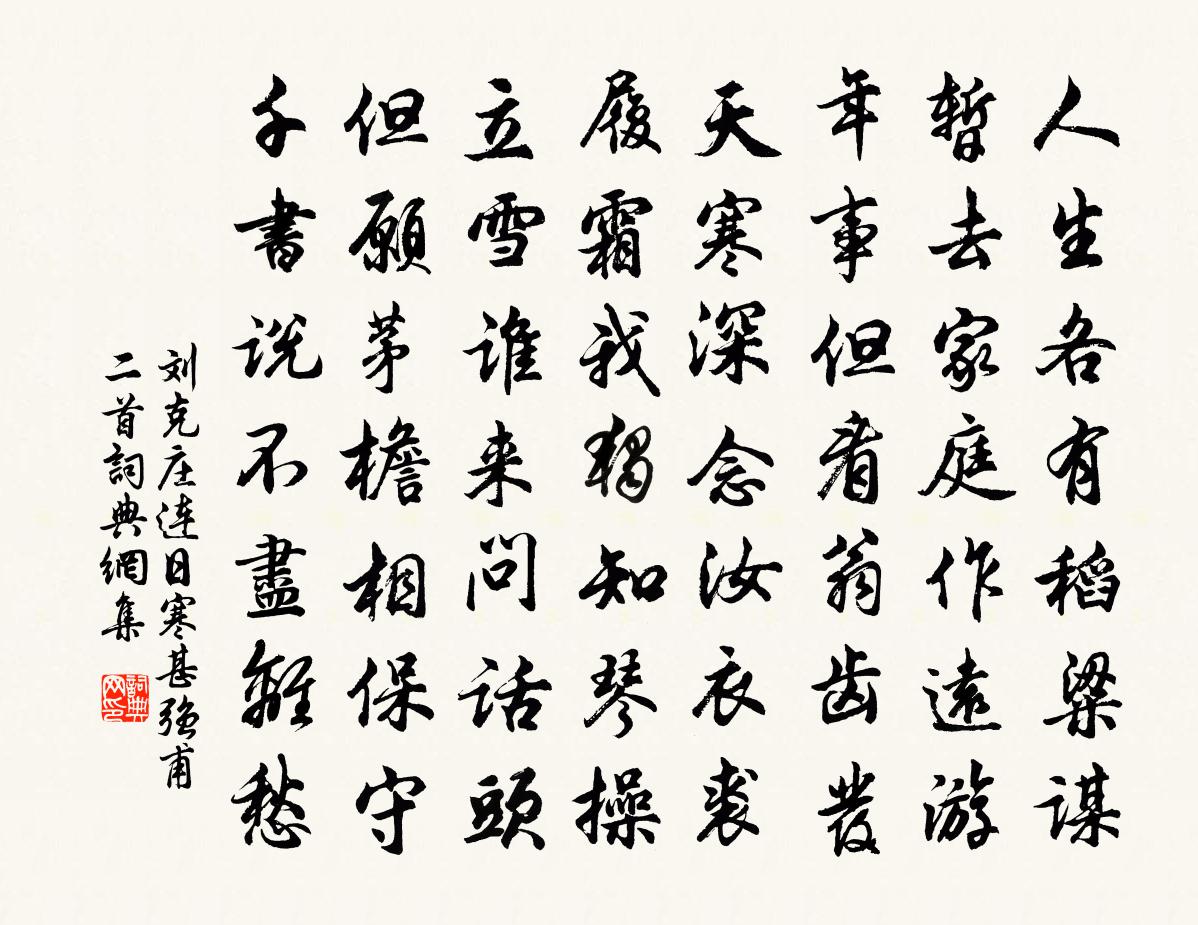 人生各有稻粱谋
暫去家庭作遠游
年事但看翁齿发
天寒深念汝衣裘
履霜我独知琴操
立雪谁来問话頭
但願茅檐相保守
千書说不盡離愁
刘克庄连日寒甚强甫
二首詞典網集
詞典网印